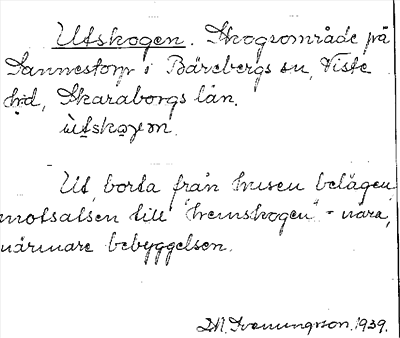 Utskogen. Skogsområde på
Sannestorp i Bärebergs sn, Viste
hd, Skaraborgs län.
ùtskoγεn.
Ut, borta från husen belägen,
motsatsen till "hemskogen" - nära,
närmare bebyggelsen.
M. Svenungson. 1939.